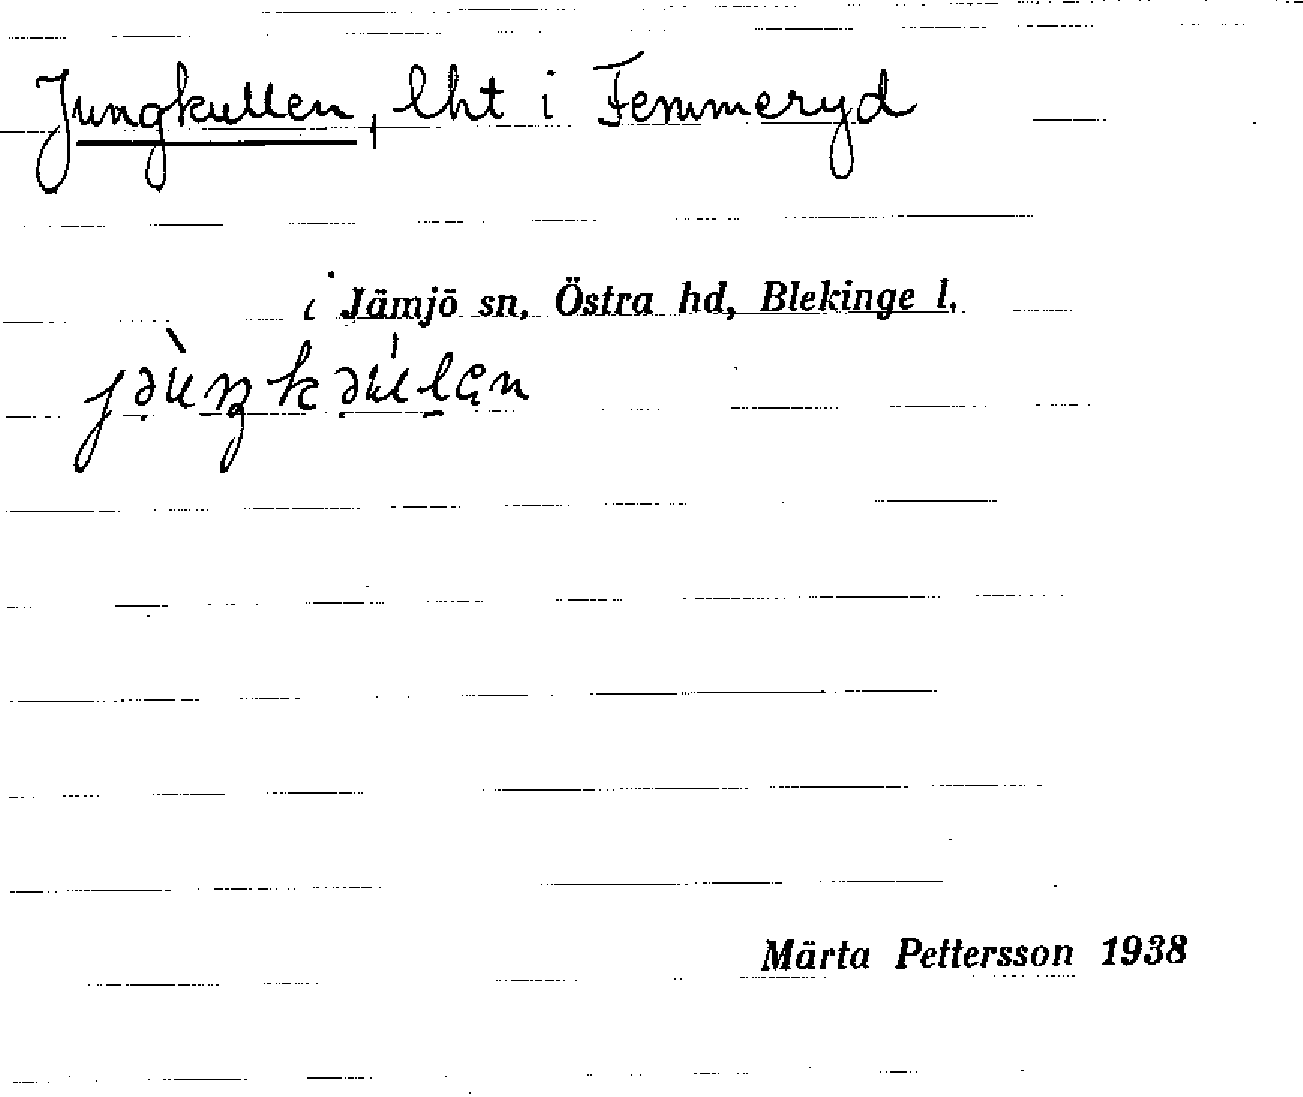 Jungkullen, lht i Femmeryd
i Jämjö sn, Östra hd, Blekinge l.
jə̀uŋkəu̍lən
Märta Pettersson 1938